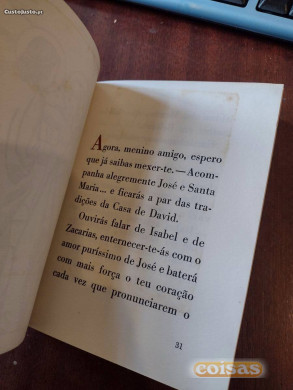 CustoJusto.pt
Agora, menino amigo, espero
que já saibas mexer-te. — Acom-
panha alegremente José e Santa
Maria... e ficarás a par das tra-
dições da Casa de David.
Ouvirás falar de Isabel e de
Zacarias, enternecer-te-ás com o
amor puríssimo de José e baterá
com mais força o teu coração
cada vez que pronunciarem o
31
coisas